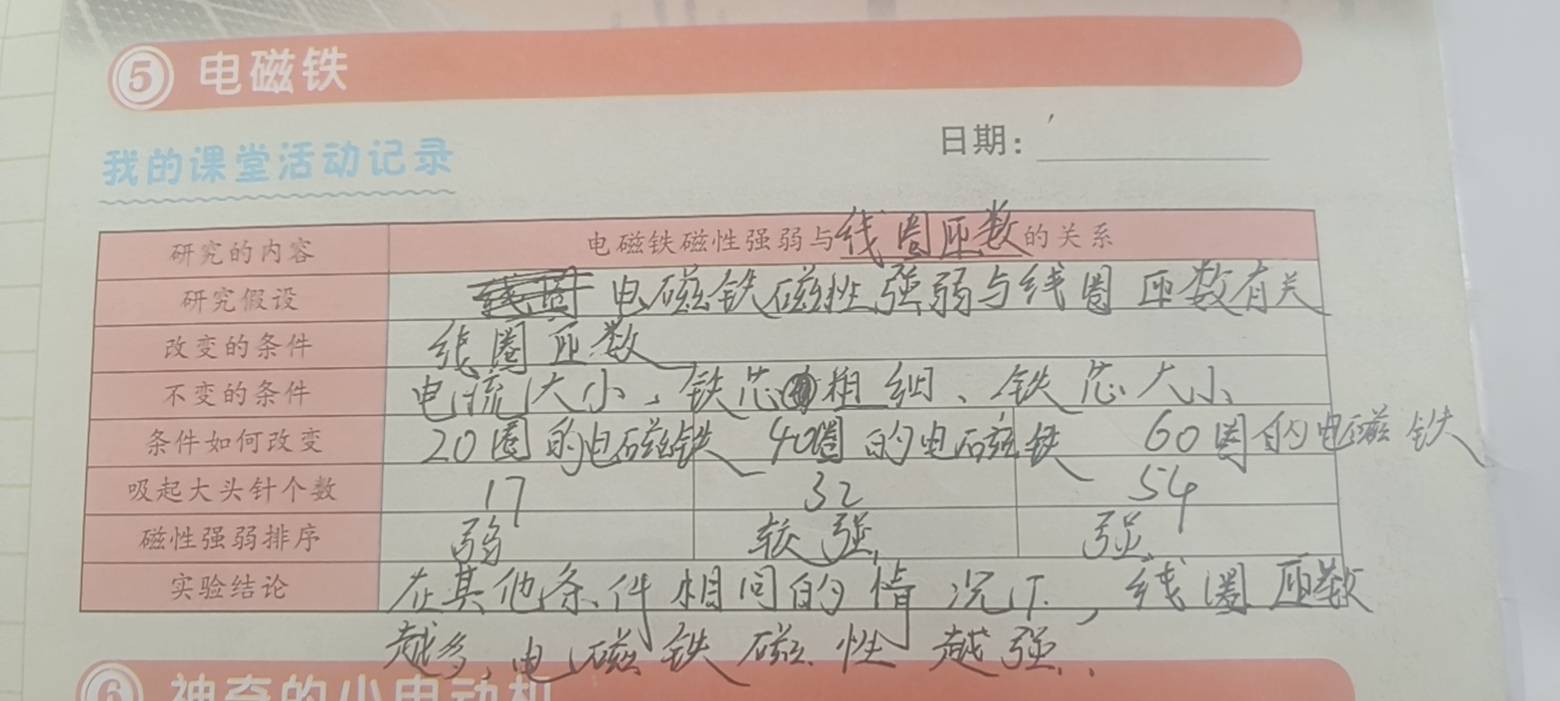 ⑤ 电磁铁
我的课堂活动记录
日期：
研究的内容 电磁铁磁性强弱与线圈匝数的关系
研究假设 电磁铁磁性强弱与线圈匝数有关
改变的条件 线圈匝数
不变的条件 电流大小、铁芯粗细、铁芯大小
条件如何改变 20圈的电磁铁 40圈的电磁铁 60圈的电磁铁
吸起大头针个数 17 32 54
磁性强弱排序 弱 较强 强
实验结论 在其他条件相同的情况下，线圈匝数
越多，电磁铁磁性越强.
⑥ 神奇的小电动机